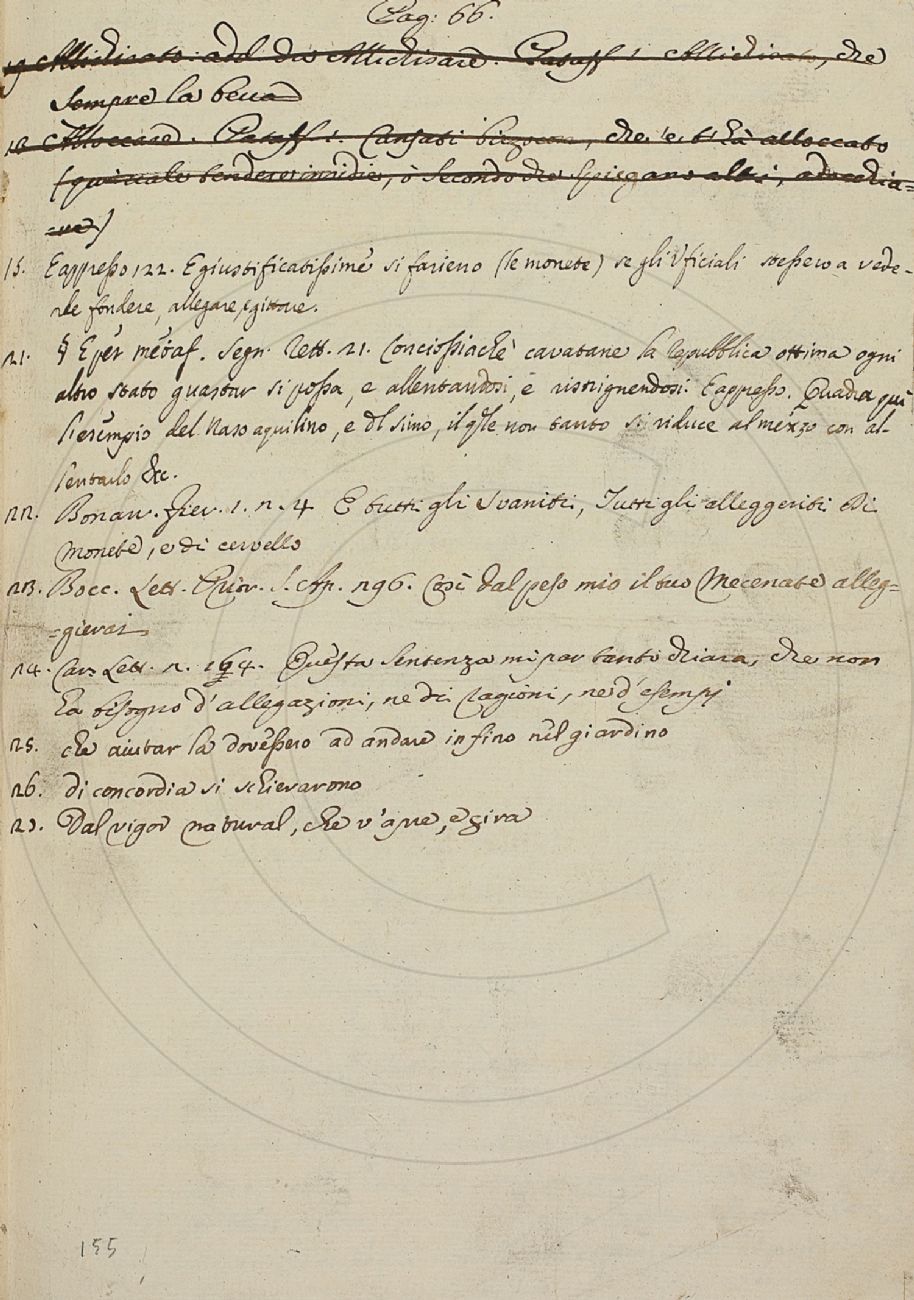 Pag: 66.
19 Allidirato. add da Allidirare. Pataff. 1. Allidirato, che
sempre la becca
18 Alloccare. Pataff. 1. Cansati bizocon, che 'e t'hà alloccato
(qui vale tendere insidie, ò secondo che spiegano altri, adocchia=
=re)
15. E appresso 122. E giustificatissime si farieno (le monete) se gli Uficiali stessero a vede-
re fondere, allegare, e gittare.
21. § E per metaf. Segn. Rett. 21. Conciossiachè cavatane la repubblica ottima ogni
altro stato guastar si possa, e allentandosi, e ristrignendosi. E appresso. Quadra qui
l'esempio del Naso aquilino, e dl simo, il qle non tanto si riduce al mezzo con al-
lentarlo &c.
22. Bonar. Fier. 1. 2. 4 E tutti gli Svaniti, Tutti gli alleggeriti Di
monete, e di cervello
23. Bocc. Lett. Prior. S. Ap. 296. Così dal peso mio il tuo Mecenate alleg=
=gierai
24. Car. Lett. 2. 164. Questa sentenza mi par tanto chiara, che non
ha bisogno d'allegazioni, ne di ragioni, ne d'esempj
25. che aiutar la dovessero ad andare infino nel giardino
26. di concordia si schierarono
27. Dal vigor natural, che v'apre, e gira
155